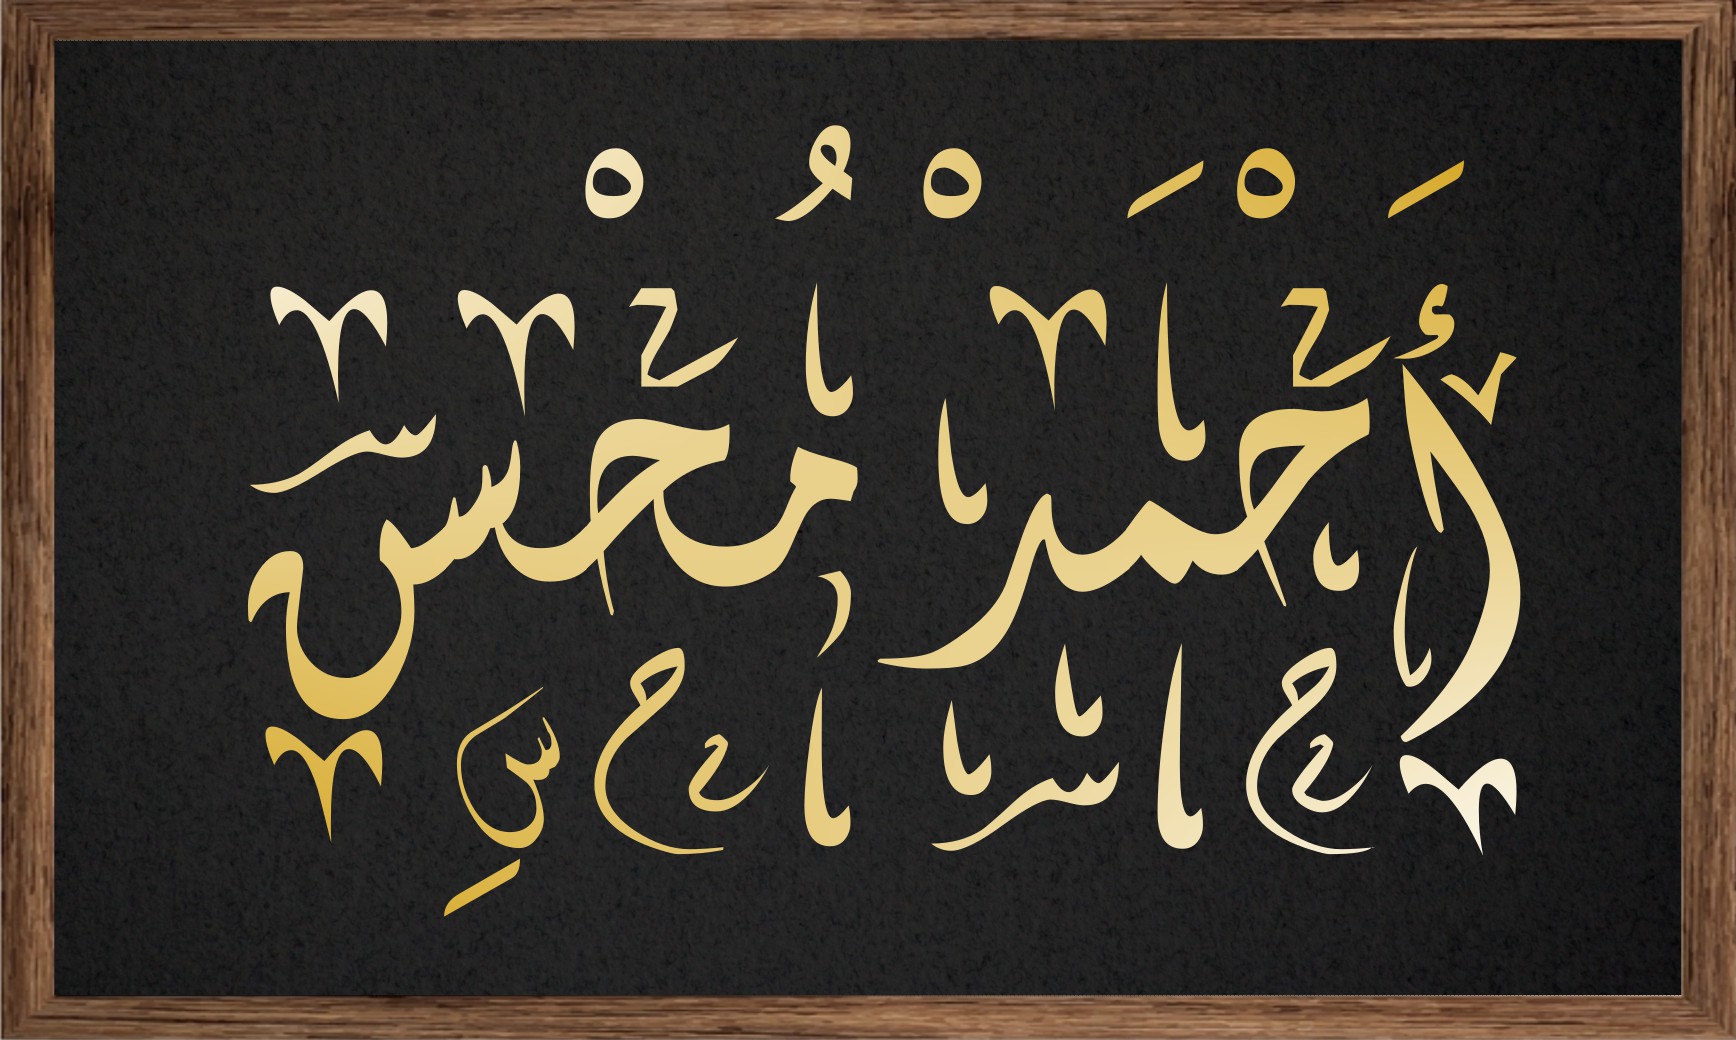 أَحْمَدْ مُحْسِن